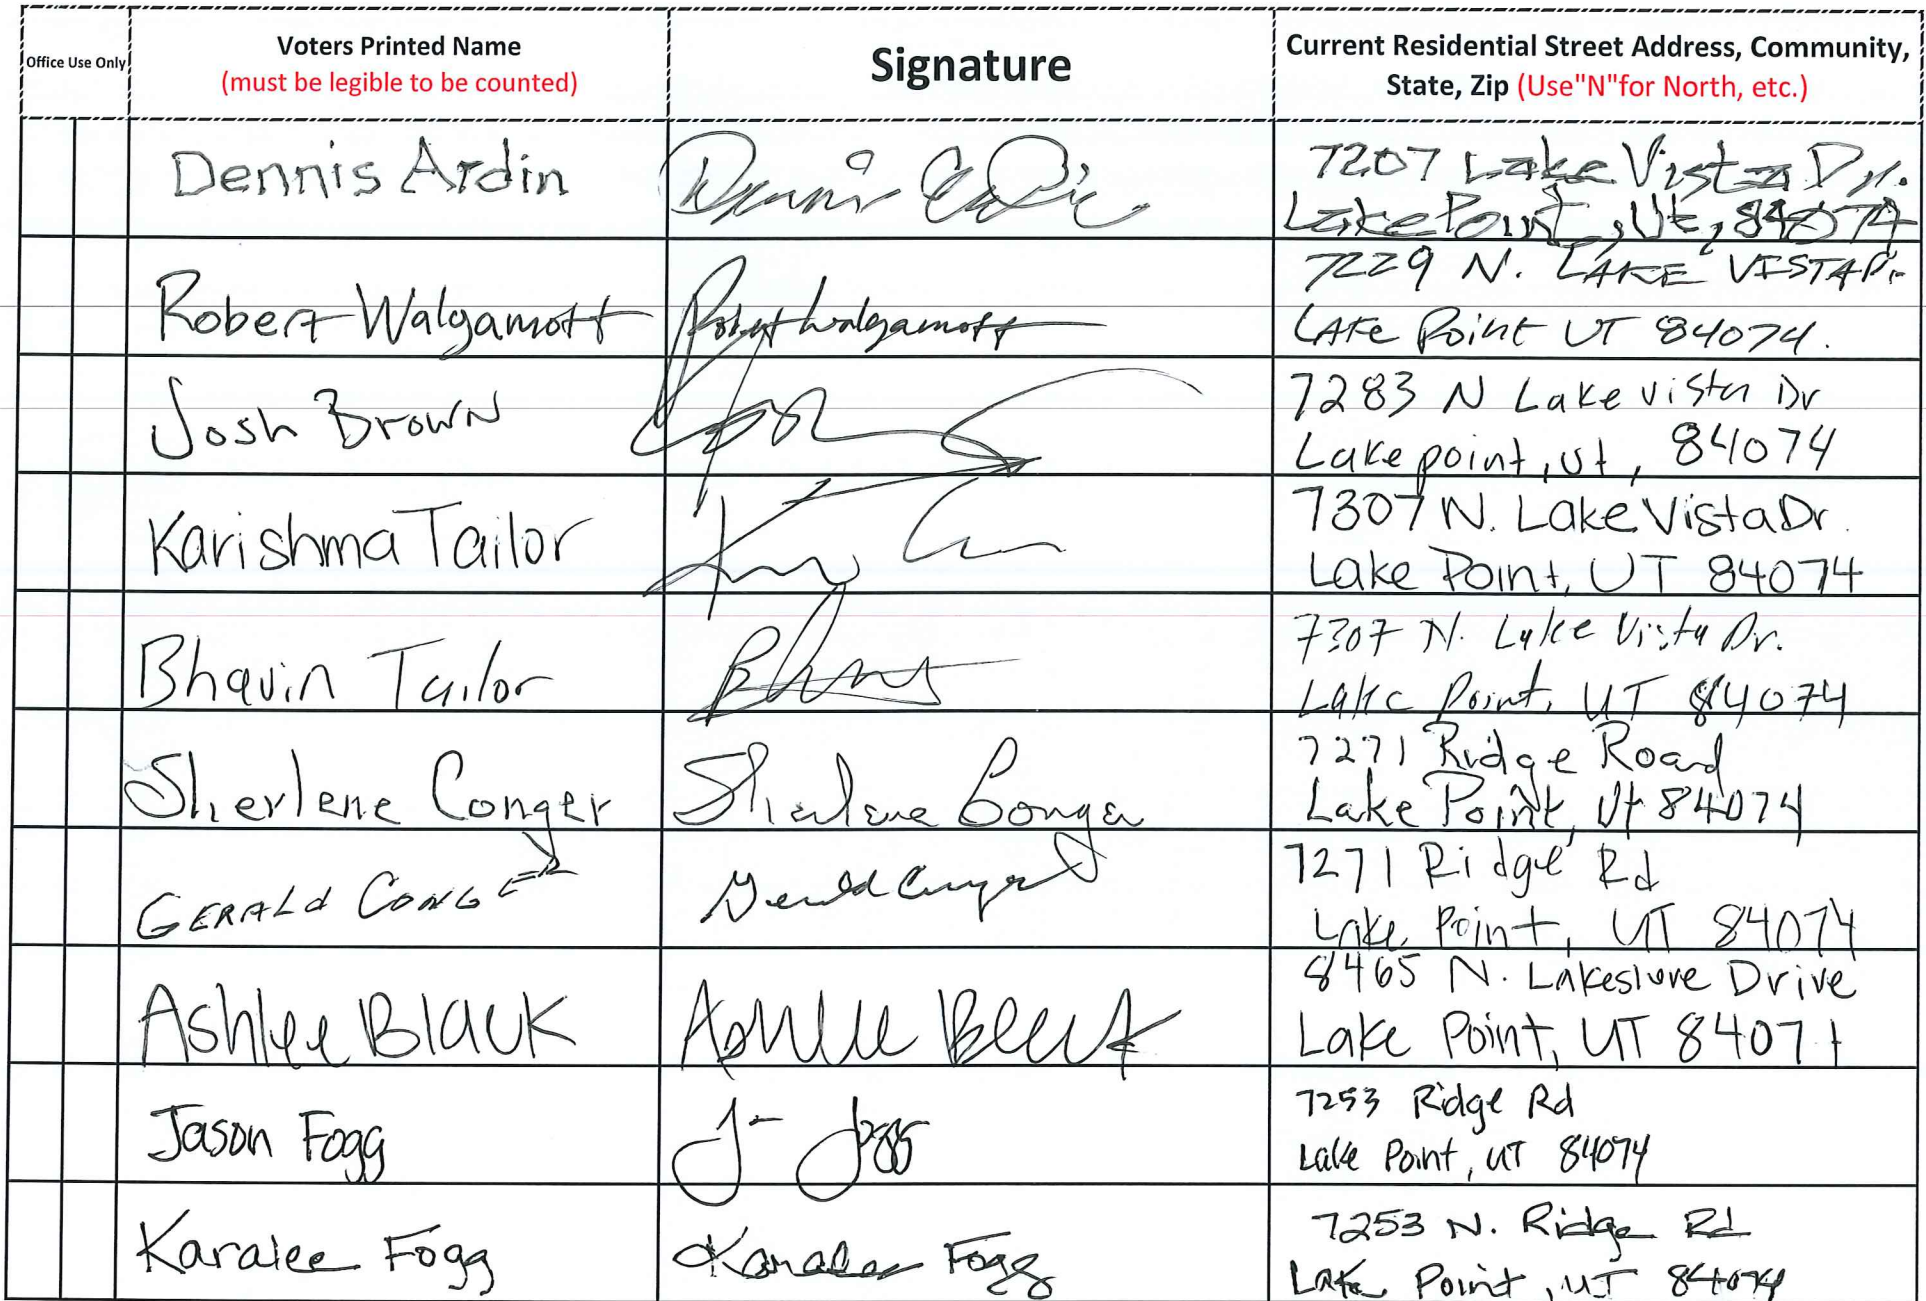 Office Use Only
Voters Printed Name
(must be legible to be counted)
Signature
Current Residential Street Address, Community,
State, Zip (Use"N"for North, etc.)
Dennis Ardin
7207 Lake Vista Dr.
Lake Point, Ut, 84074
Robert Walgamott
Robert Walgamott
7229 N. LAKE VISTA Dr.
LAKE Point UT 84074.
Josh Brown
7283 N Lake vista Dr
Lake point, ut, 84074
Karishma Tailor
7307 N. Lake Vista Dr.
Lake Point, UT 84074
Bhavin Tailor
7307 N. Lake Vista Dr.
Lake Point, UT 84074
Sherlene Conger
Sherlene Conger
7271 Ridge Road
Lake Point, Ut 84074
GERALd CONGER
Gerald Conger
7271 Ridge Rd
Lake Point, UT 84074
Ashlee Black
Ashlee Black
8465 N. Lakeshore Drive
Lake Point, UT 84074
Jason Fogg
J Fogg
7253 Ridge Rd
Lake Point, UT 84074
Karalee Fogg
Karalee Fogg
7253 N. Ridge Rd
Lake Point, UT 84074